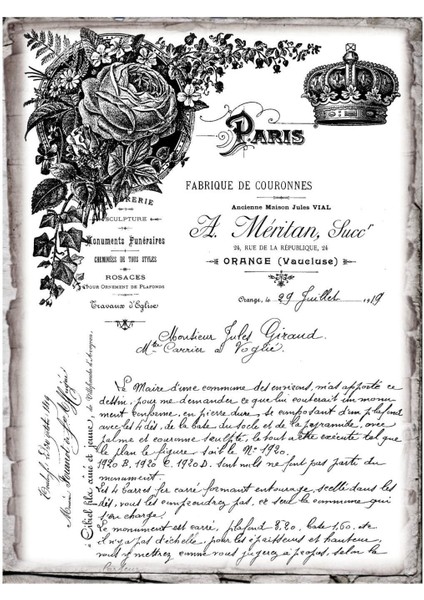 PARIS
FABRIQUE DE COURONNES
Ancienne Maison Jules VIAL
A. Méritan, Succr
24, RUE DE LA RÉPUBLIQUE, 24
ORANGE (Vaucluse)
SCULPTURE
Monuments Funéraires
CHEMINÉES DE TOUS STYLES
ROSACES
POUR ORNEMENT DE PLAFONDS
Travaux d'Eglise
Orange, le 29 Juillet 1919
Monsieur Jules Giraud.
Mtre Carrier à
Le Maire d'une commune des environs, m'as apporté ce
dessin, pour me demander ce que lui couterait un monu-
ment conforme, en pierre dure, se composant d'un plafond
avec les dés, de la base du socle et de la pyramide, avec
palme et couronne sculpté, le tout a être exécuté tel que
le plan le figure sous le No 1920.
1920 B, 1920 C, 1920 D. sont nuls ne font pas partie du
monument.
Les 4 barres fer carré formant entourage, scellé dans les
dés, vous les comprendrez pas, et seul la commune qui
s'en charge.
Le monument est carré, plafond
il n'y a pas d'échelle, pour les épaisseurs et hauteur,
vous y mettrez comme vous jugerez à propos, selon la